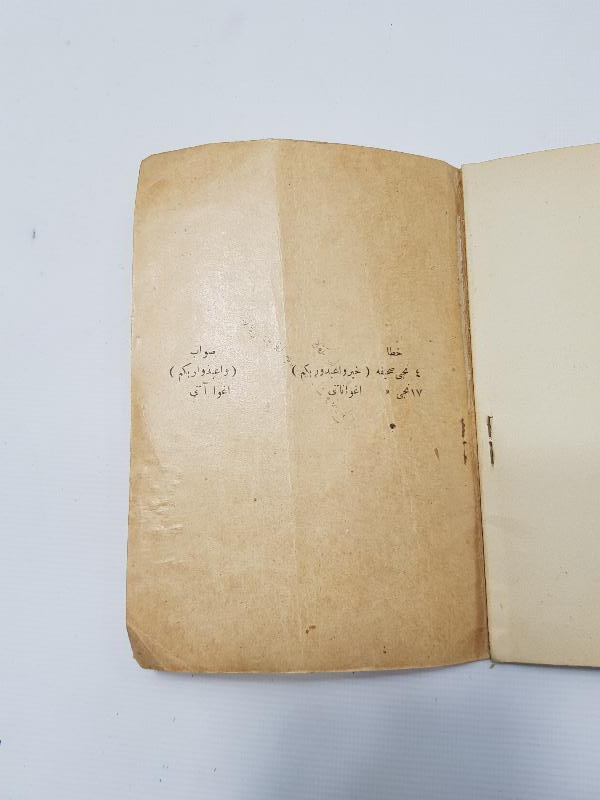 خطا صواب
٤ نجی صحیفه ( خیر واعبدوربکم ) ( واعبدواربکم )
١٧ نجی » اغواناتی اغوا آتی